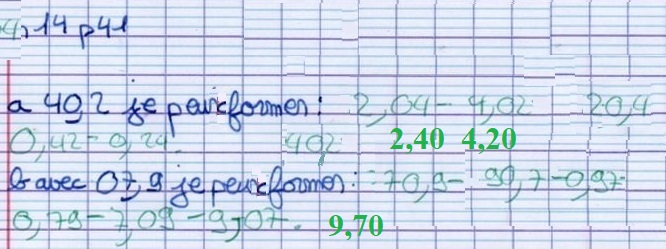 14 p 41
a 40,2 je peux former : 2,04 - 4,02 20,4
0,42 - 0,24. 402 2,40 4,20
b avec 07,9 je peux former : 70,9 - 90,7 - 0,97
0,79 - 7,09 - 9,07. 9,70